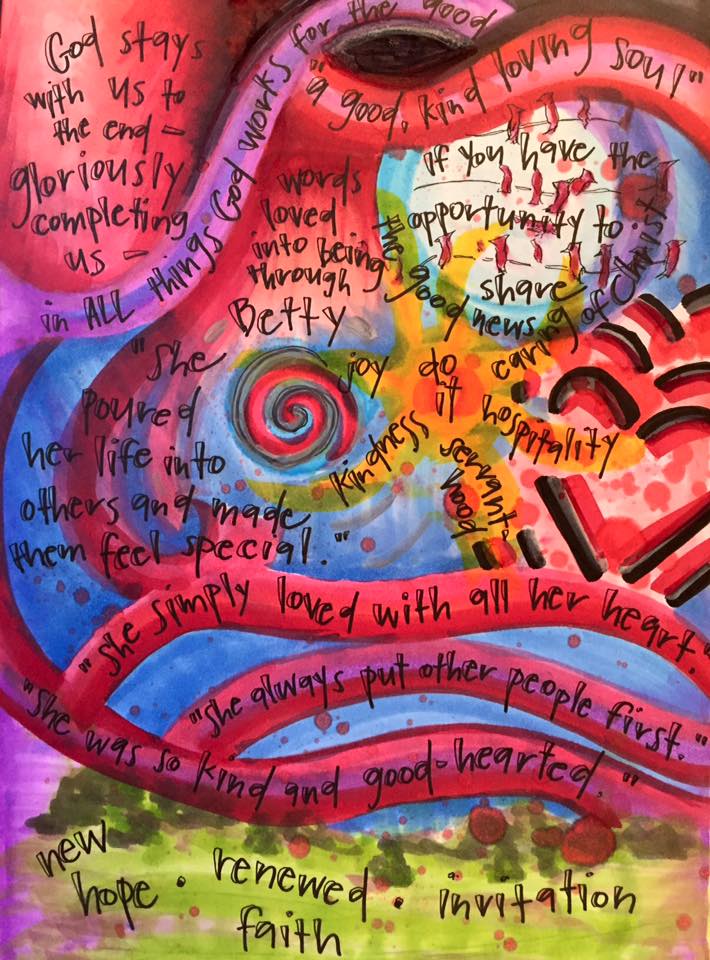 God stays
with us to
the end -
gloriously
completing
us -
in ALL things God works for the good
"a good, kind loving soul"
words
loved
into being
through
Betty
if you have the
opportunity to
share
the good news of Christ
joy
do
it
caring
hospitality
kindness
servant-
hood
"She
poured
her life into
others and made
them feel special."
"she simply loved with all her heart."
"she always put other people first."
"she was so kind and good-hearted."
new
hope . renewed . invitation
faith